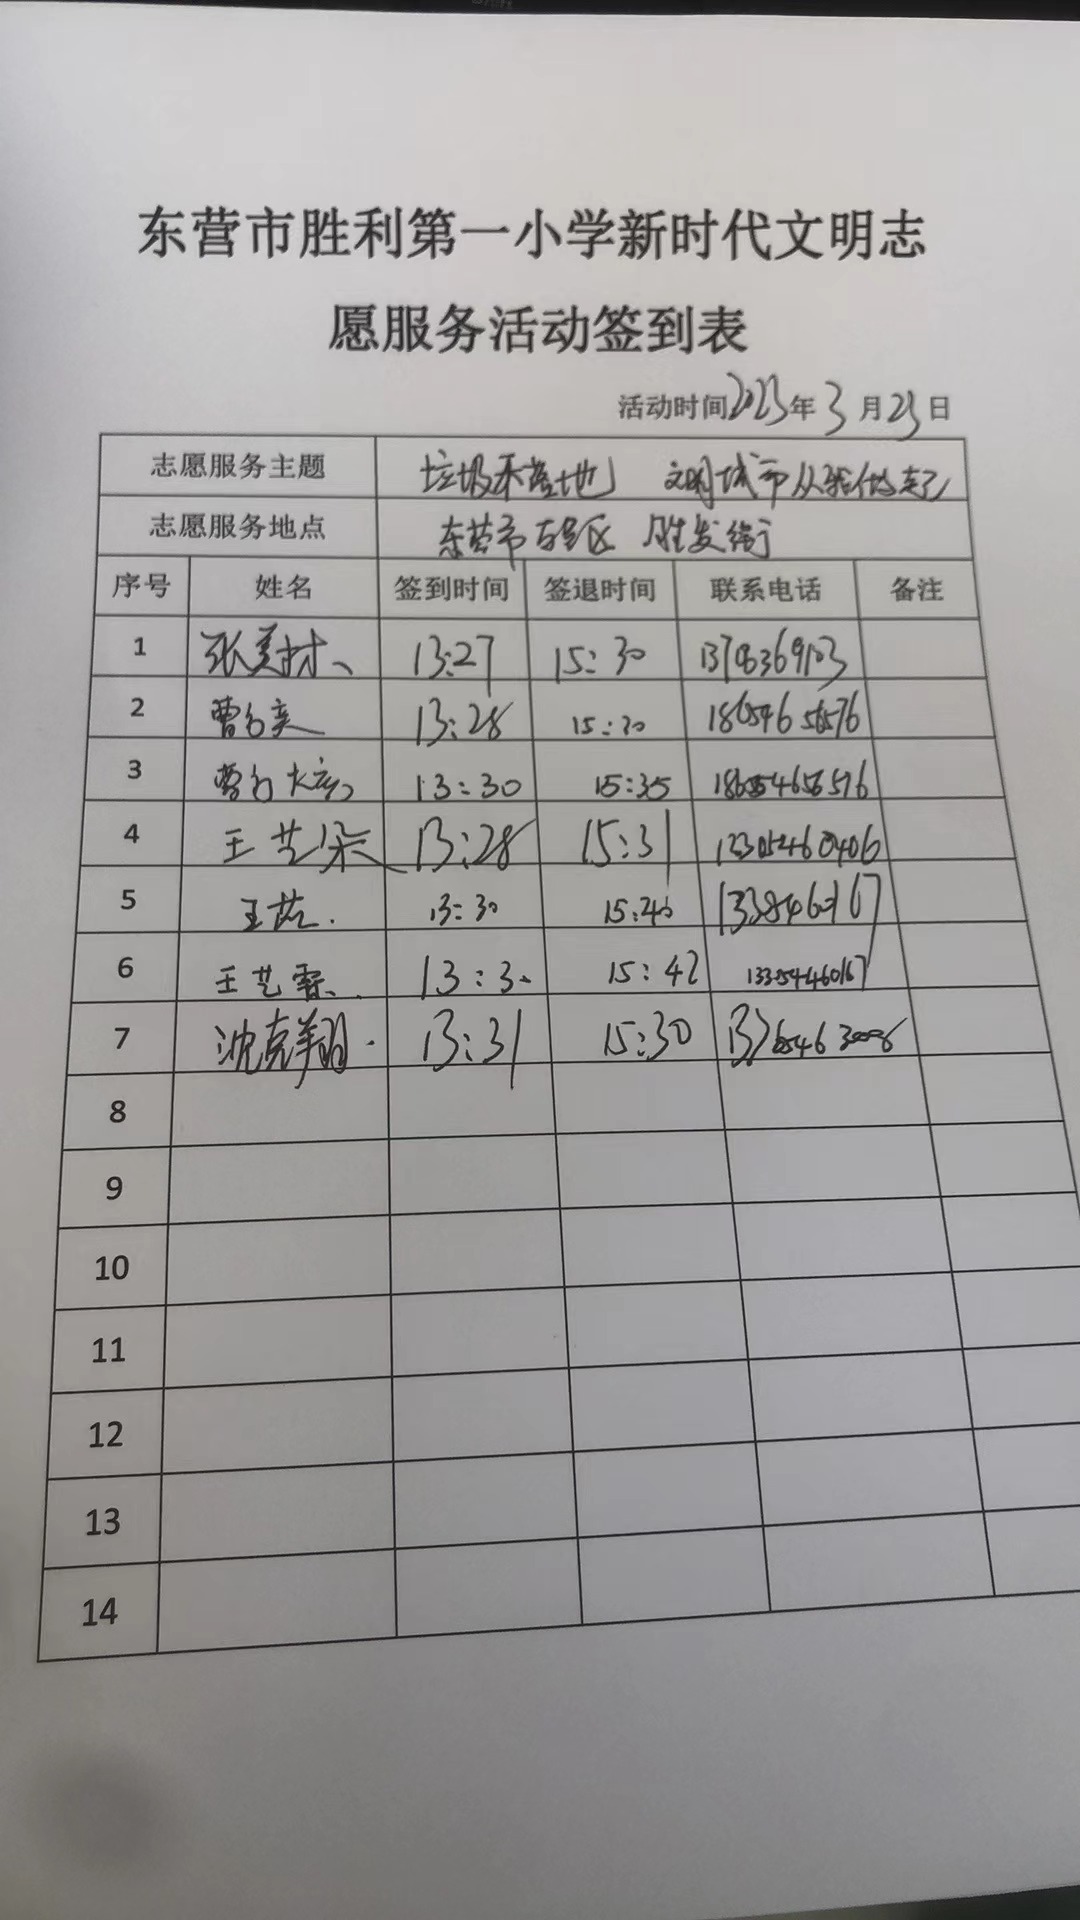 东营市胜利第一小学新时代文明志
愿服务活动签到表
活动时间2023年3月23日
志愿服务主题 垃圾不落地 文明城市从我做起
志愿服务地点 东营市东营区 胜发街
序号 姓名 签到时间 签退时间 联系电话 备注
1 13:27 15:30
2 13:28 15:30 18654656576
3 13:30 15:35 18654656576
4 王艺朵 13:28 15:31
5 13:30 15:40
6 王艺霖 13:30 15:42
7 沈克翔 13:31 15:30
8
9
10
11
12
13
14